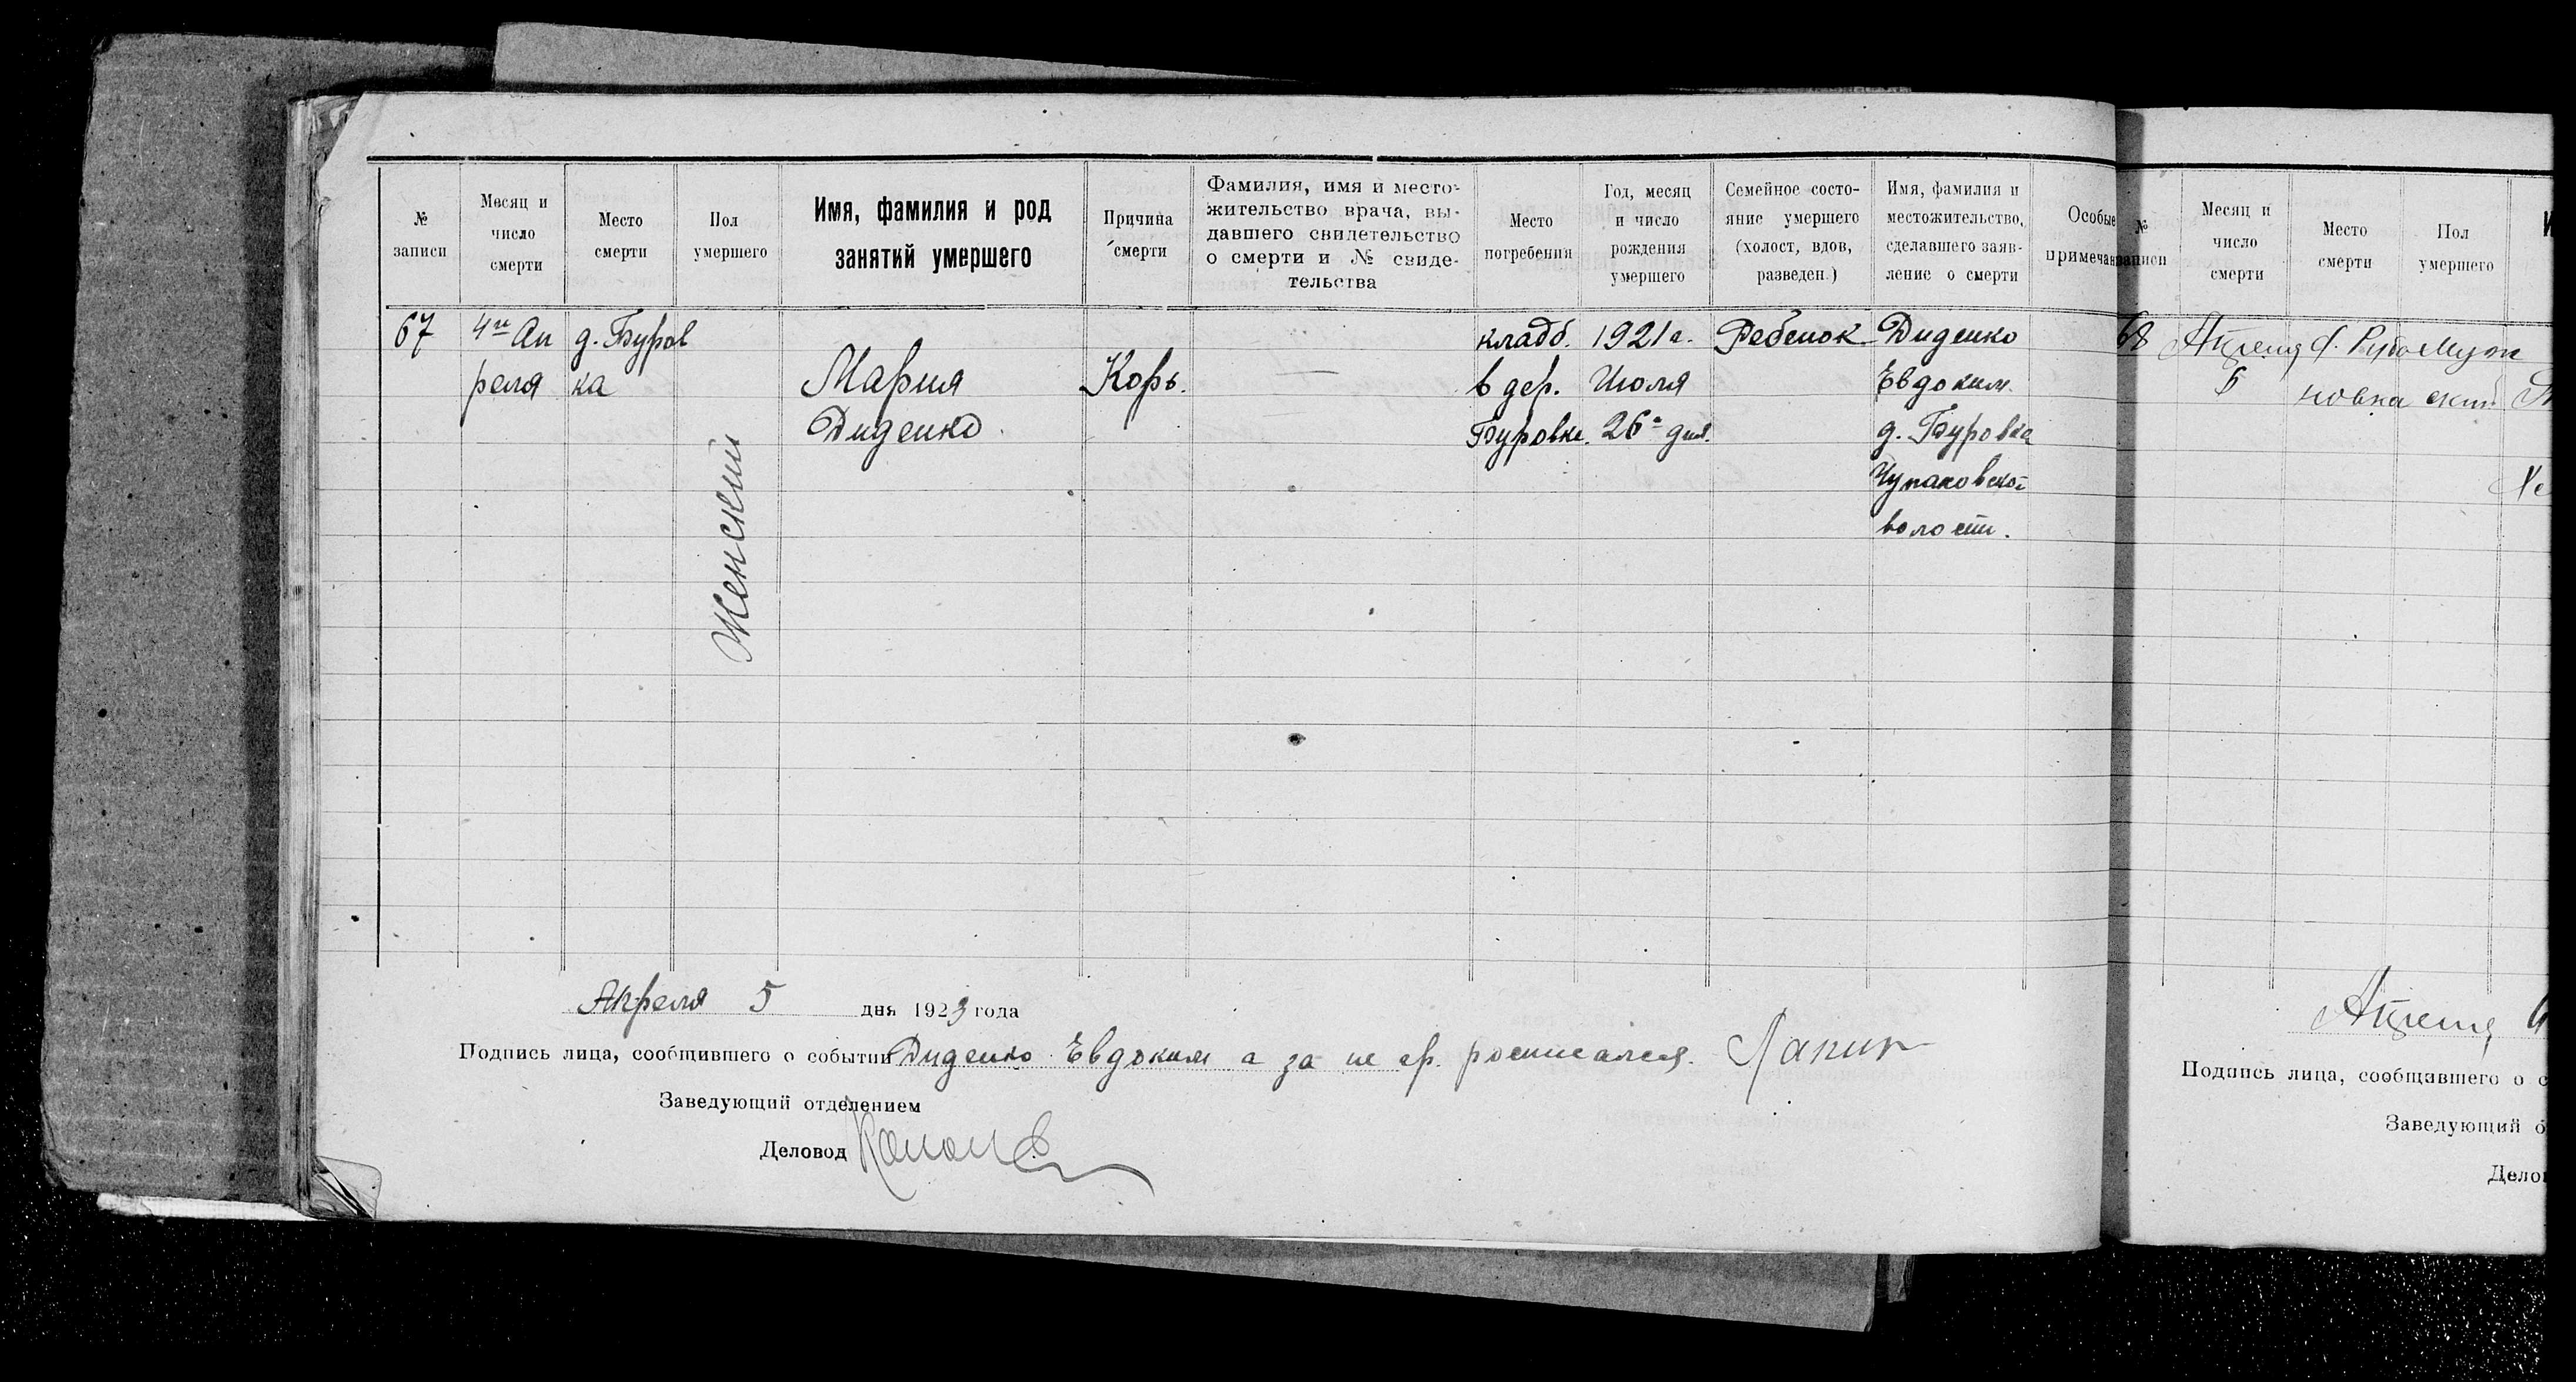 № записи
Месяц и число смерти
Место смерти
Пол умершего
Имя, фамилия и род занятий умершего
Причина смерти
Фамилия, имя и место-
жительство врача, вы-
давшего свидетельство
о смерти и № свиде-
тельства
Место погребения
Год, месяц и число рождения умершего
Семейное состо-
яние умершего
(холост, вдов,
разведен.)
Имя, фамилия и
местожительство,
сделавшего заяв-
ление о смерти
Особые
примечан
67
4го Ап
реля
д. Буров
ка
Женский
Мария
Диденко
Корь.
—
кладб.
в дер.
Буровке.
1921 г.
Июля
26го дня.
Ребенок
Диденко
Евдоким
д. Буровка
Чупаковской
волости.
Апреля 5 дня 1923 года
Подпись лица, сообщившего о событии Диденко Евдоким а за не гр. росписался. Лапин
Заведующий отделением
Деловод
№
записи
Месяц и
число
смерти
Место
смерти
Пол
умершего
68
Апреля
5
новка
Муж
ской
Апреля
Подпись лица, сообщившего о с
Заведующий о
Делов